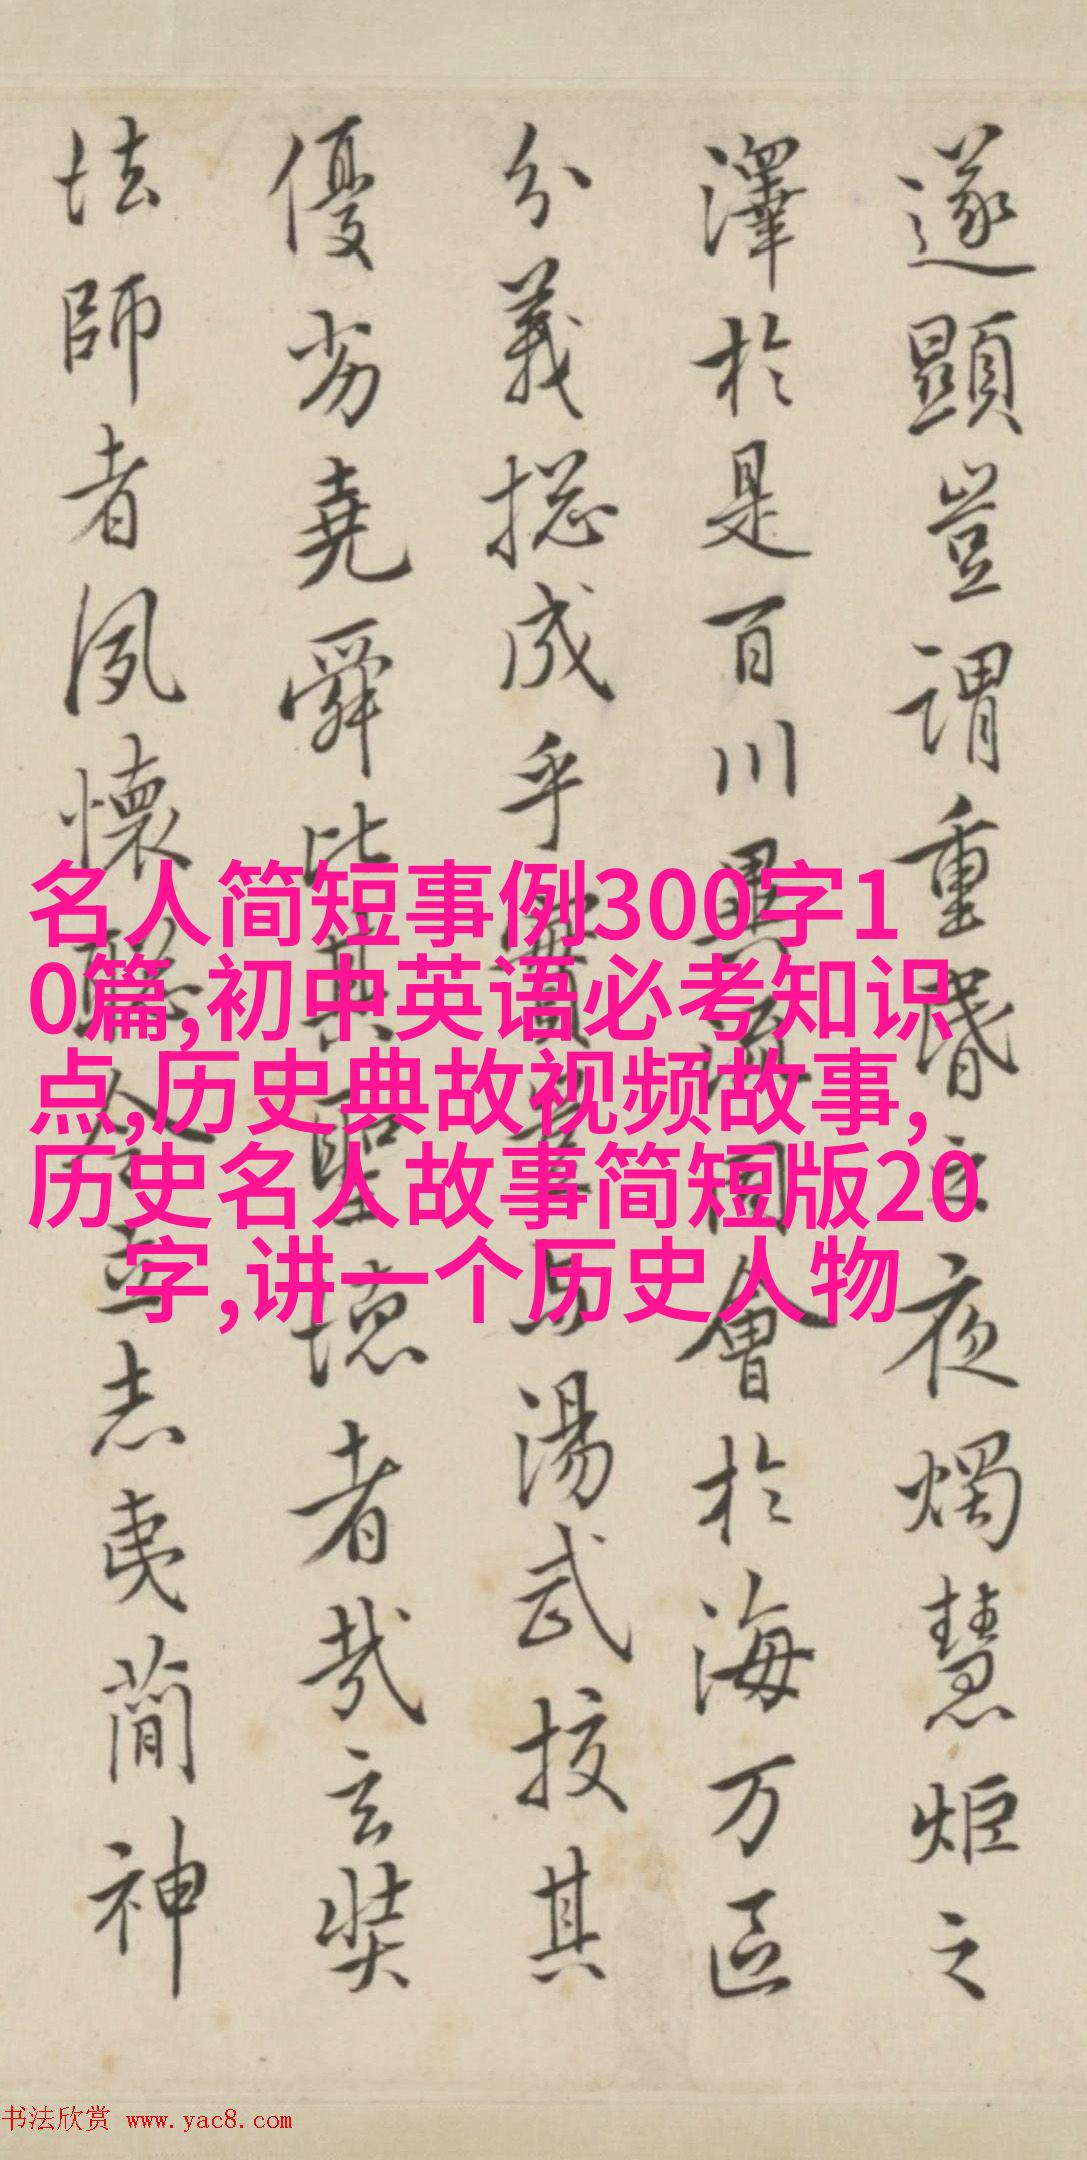 遂顯豈謂重昬之夜燭慧炬之
澤於是百川異流同會於海万區
分義揔成乎實豈与湯武挍其
優劣堯舜比其聖德者哉玄奘
法師者夙懷聰令立志夷簡神
名人简短事例300字1
0篇,初中英语必考知识
点,历史典故视频故事,
历史名人故事简短版20
字,讲一个历史人物
书法欣赏 www.yac8.com